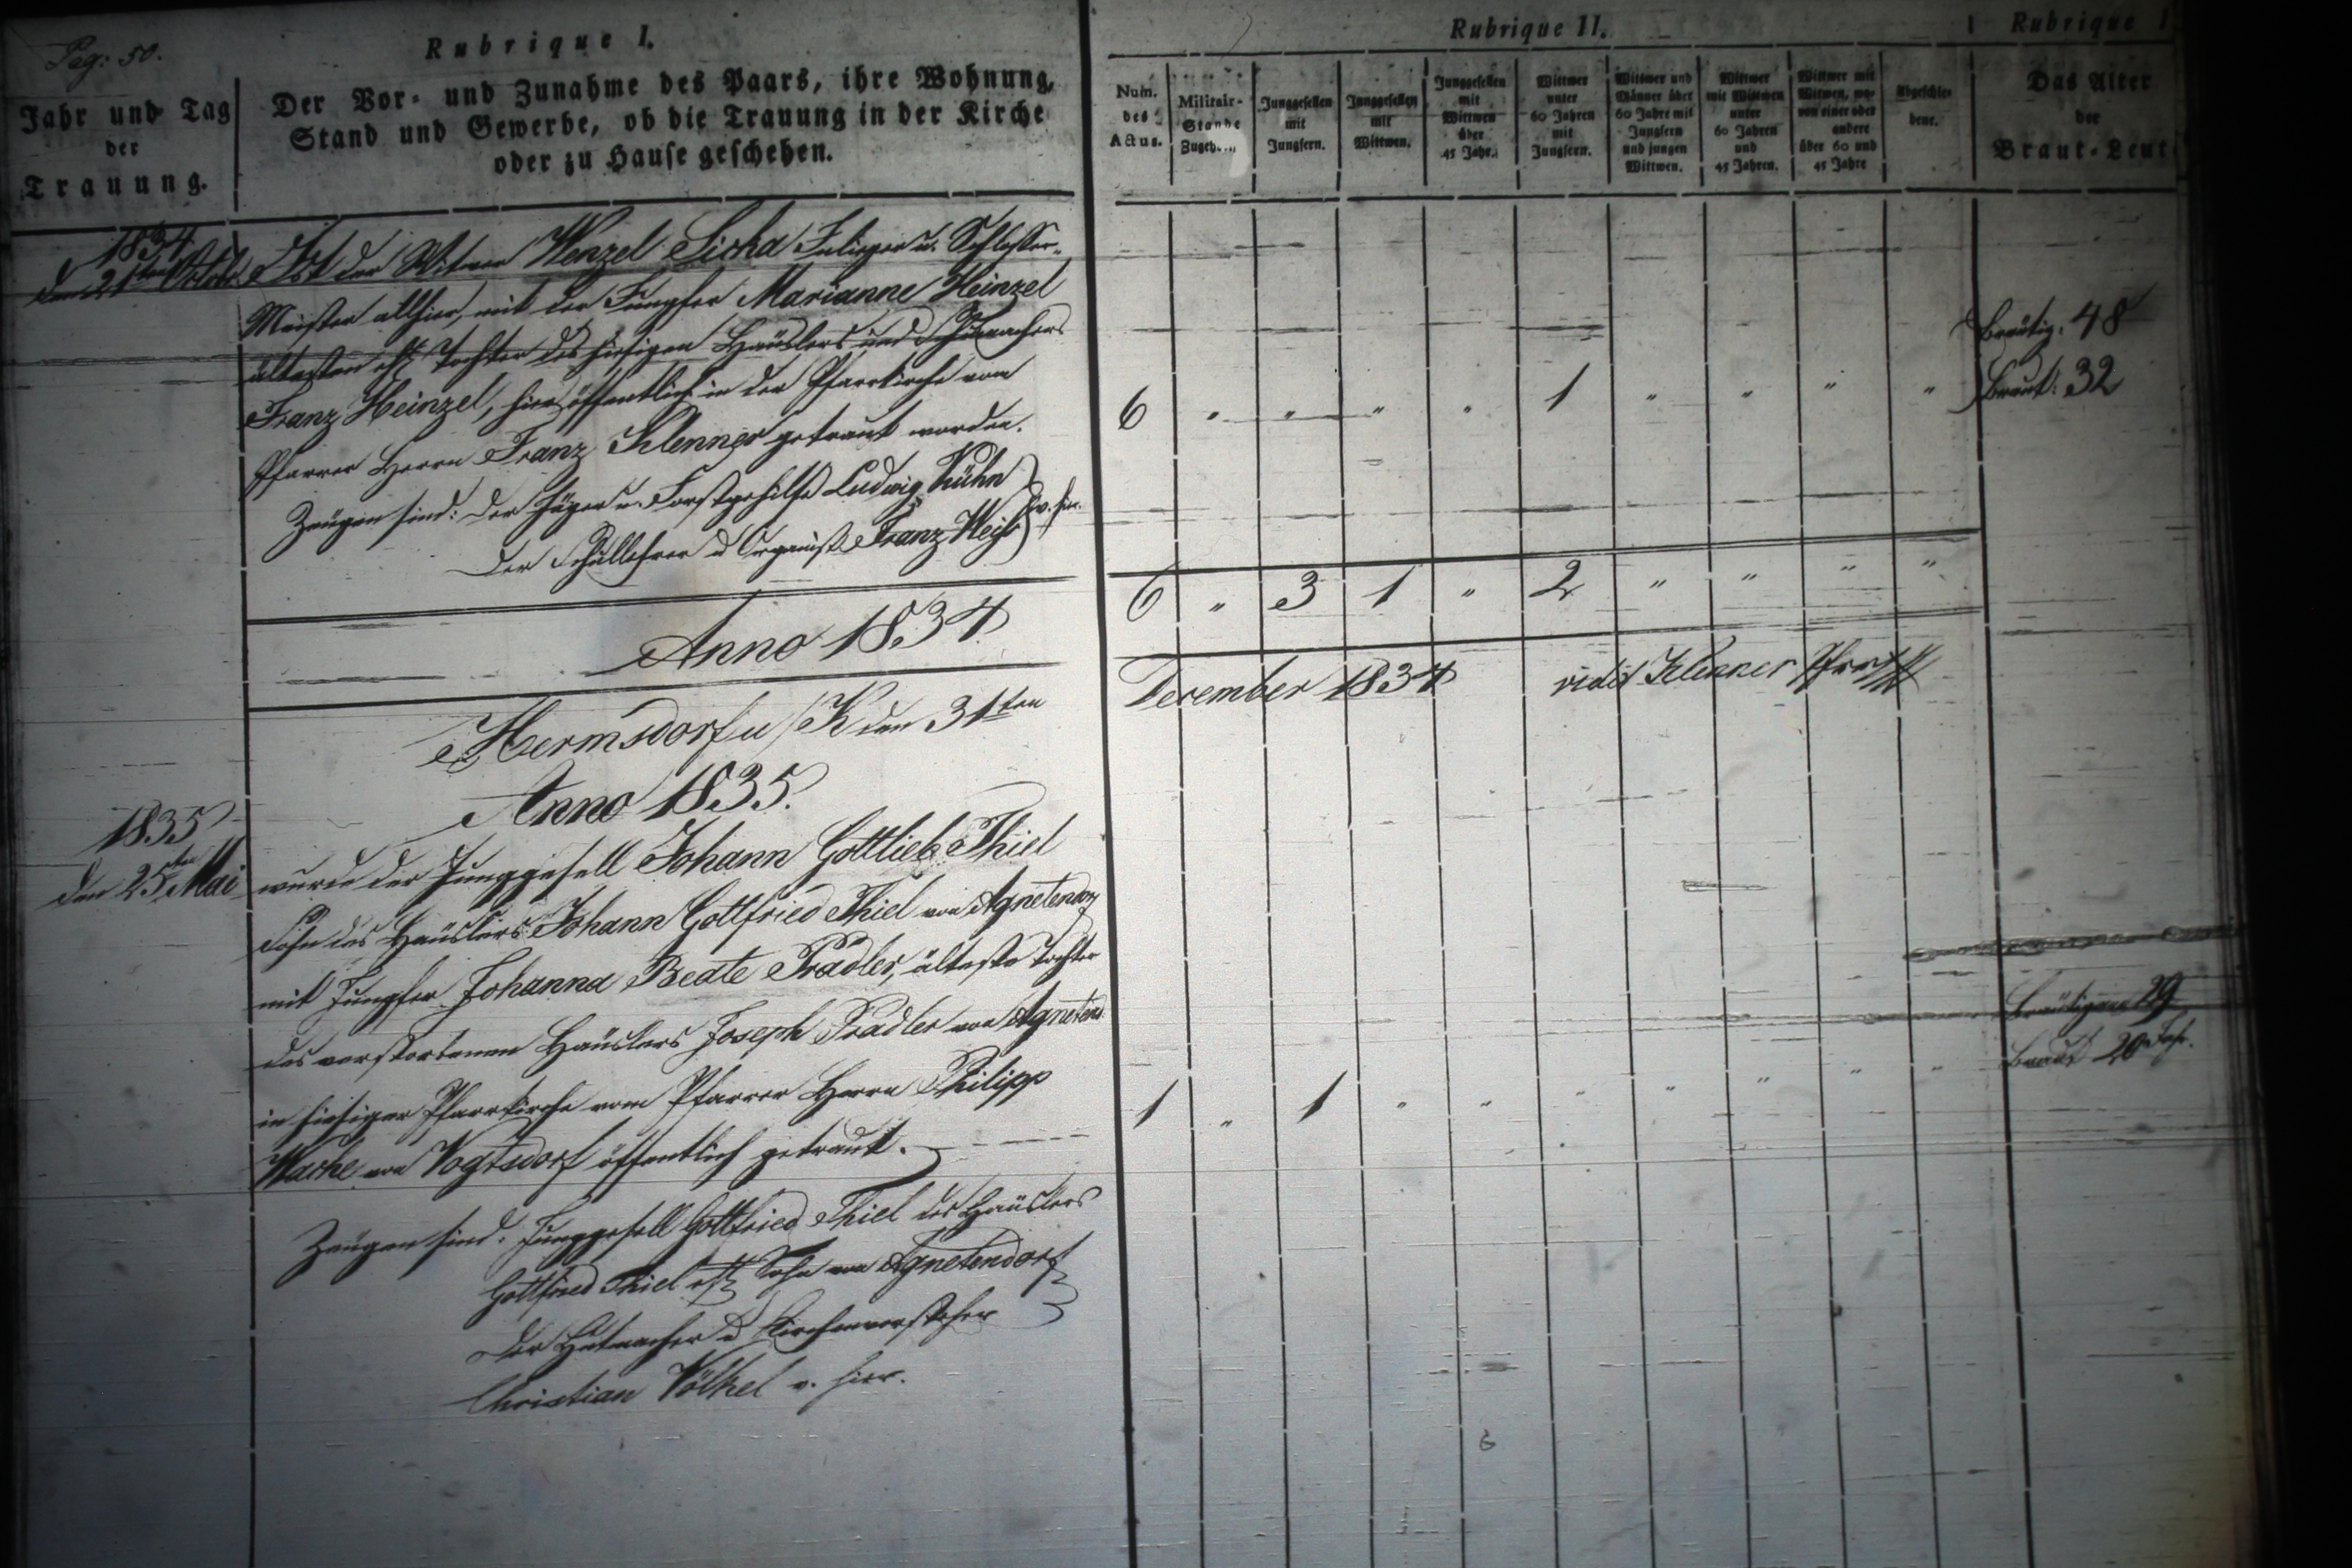 Pag: 50.
Rubrique I.
Jahr und Tag
der
Trauung.
Der Vor- und Zunahme des Paars, ihre Wohnung,
Stand und Gewerbe, ob die Trauung in der Kirche
oder zu Hause geschehen.
Rubrique II.
Num.
des
Actus.
Militair-
Stande
Junggesellen
mit
Jungfern.
Junggesellen
mit
Wittwen.
Junggesellen
mit
Wittwen
über
45 Jahr.
Wittwer
unter
60 Jahren
mit
Jungfern.
Wittwer und
Männer über
60 Jahre mit
Jungfern
und jungen
Wittwen.
Wittwer
mit Wittwen
unter
60 Jahren
und
45 Jahren.
Wittwer mit
Witwen, wo-
von einer oder
andere
über 60 und
45 Jahre
Abgeschie-
dene.
Rubrique
Das Alter
der
Braut-Leut
1834
den 21ten Octob.
Ist der Witwer Wenzel Sicha Inlieger u. Schlosser-
Meister allhier, mit der Jungfer Marianne Heinzel
ältesten ehl. Tochter des hiesigen Häuslers und
Franz Heinzel, hier öffentlich in der Pfarrkirche vom
Pfarrer Herrn Franz Klenner getraut worden.
Zeugen sind: Der Jäger u. Forstgehilfe Ludwig Kühn
Der Schullehrer u Organist Franz Weiß v. hier.
6 " " " " 1 " " " "
Bräutig: 48
Braut: 32
6 " 3 1 " 2 " " " "
Anno 1834
Hermsdorf u/K den 31ten December 1834 vidit Klenner Pfarr
Anno 1835.
1835
den 25ten Mai
wurde der Junggesell Johann Gottlieb Thiel
Sohn des Häuslers Johann Gottfried Thiel von Agnetendorf
mit Jungfer Johanna Beate Pradler, älteste Tochter
des verstorbenen Häuslers Joseph Pradler von Agnetend
in hiesiger Pfarrkirche vom Pfarrer Herrn Philipp
Wache von Vogtsdorf öffentlich getraut.
1 " 1 " " " " " " "
Bräutigam 29
Braut 20 Jahr.
Zeugen sind: Junggesell Gottfried Thiel des Häuslers
Gottfried Thiel ehl. Sohn von Agnetendorf
Der Hutmacher u Kirchenvorsteher
Christian Völkel v. hier.